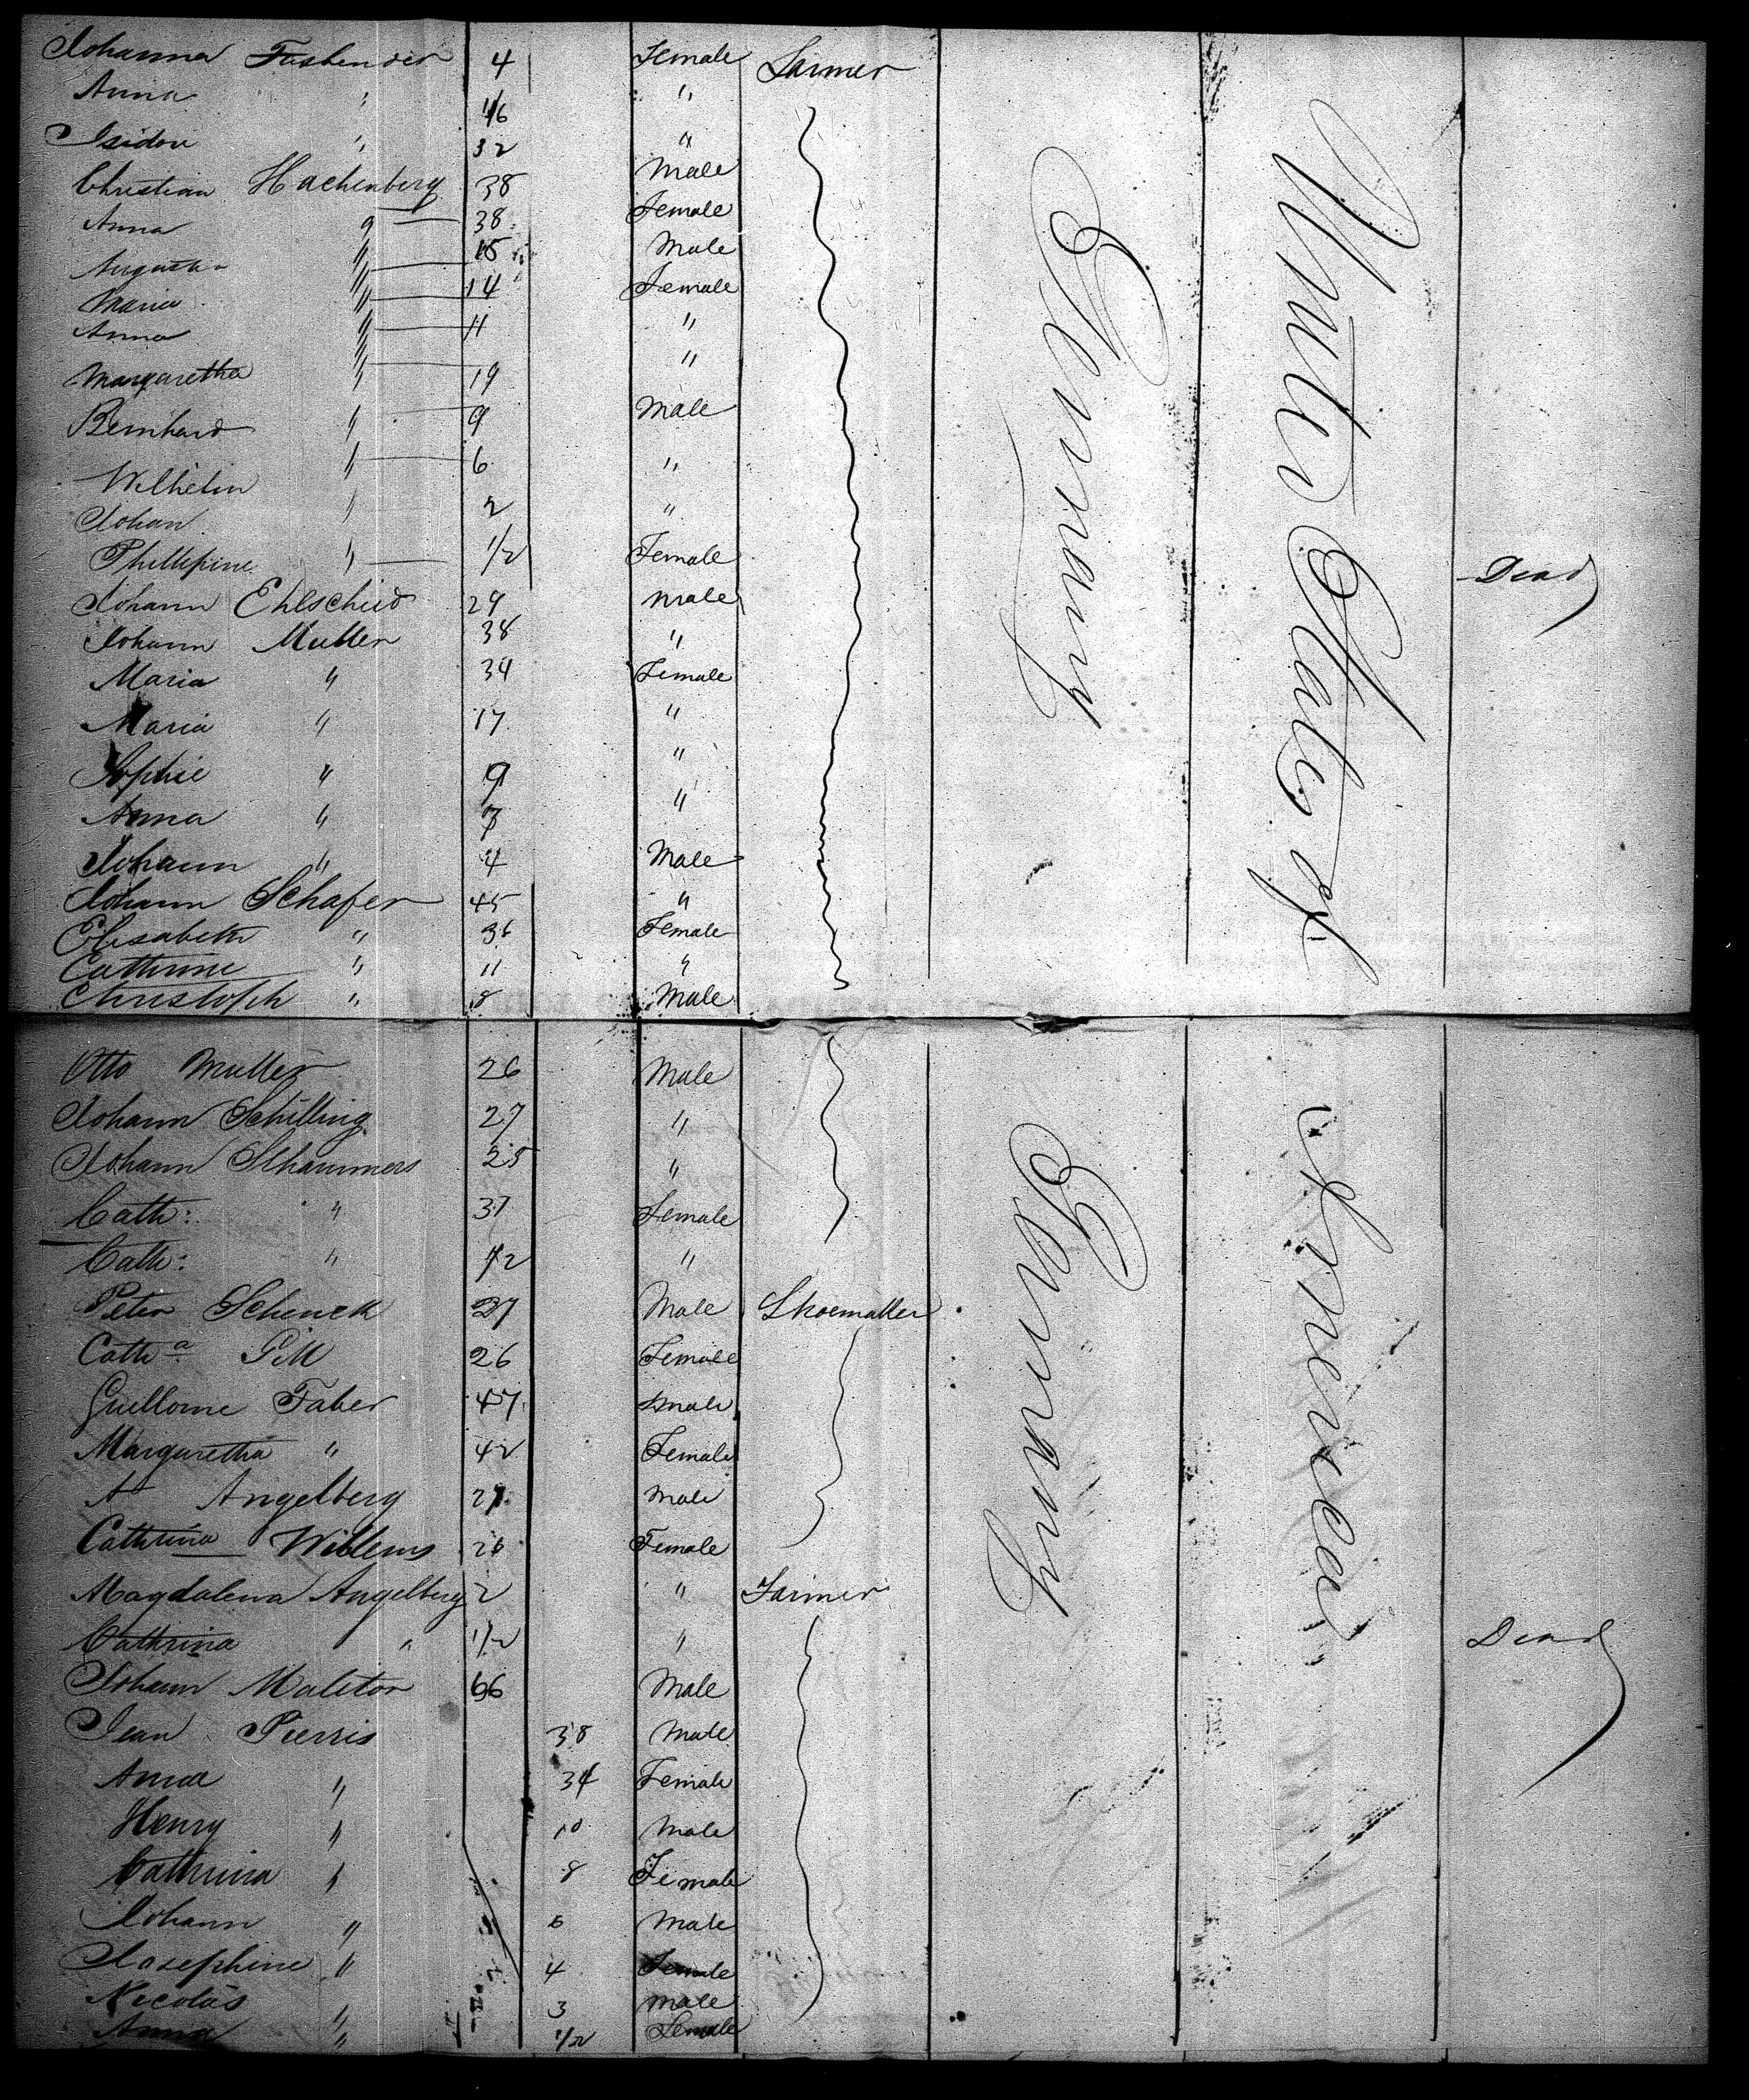 Johanna Fasbender 4 Female Farmer
Anna " 46 "
Isidor " 32 "
Christian Hachenberg 38 Male
Anna " 38 Female
August " 15 Male
Maria " 14 Female
Anna " 11 "
Margaretha " 19 "
Bernhard " 9 Male
Wilhelm " 6 "
Johan " 2 "
Phillepine " 1/2 Female Dead
Johann Ehlscheid 29 Male
Johann Muller 38 "
Maria " 34 Female
Maria " 17 "
Sophie " 9 "
Anna " 7 "
Johann " 4 Male
Johann Schafer 45 "
Elisabeth " 36 Female
Cathrine " 11 "
Christoph " 8 Male
Germany
United States of
Otto Muller 26 Male
Johann Schilling 27 "
Johann Schammers 25 "
Cath: " 37 Female
Cath: " 1/2 "
Peter Schenck 27 Male Shoemaker
Cath a Pill 26 Female
Guillome Faber 47 Male
Margaretha " 42 Female
A Angelberg 27 Male
Cathrina Willems 26 Female
Magdalena Angelberg 2 " Farmer
Cathrina " 1/2 " Dead
Johann Maletor 66 Male
Jean Pierris 38 Male
Anna " 34 Female
Henry " 10 Male
Cathrina " 8 Female
Johann " 6 Male
Josephine " 4 Female
Necolas " 3 Male
Anna " 1/2 Female
Germany
America